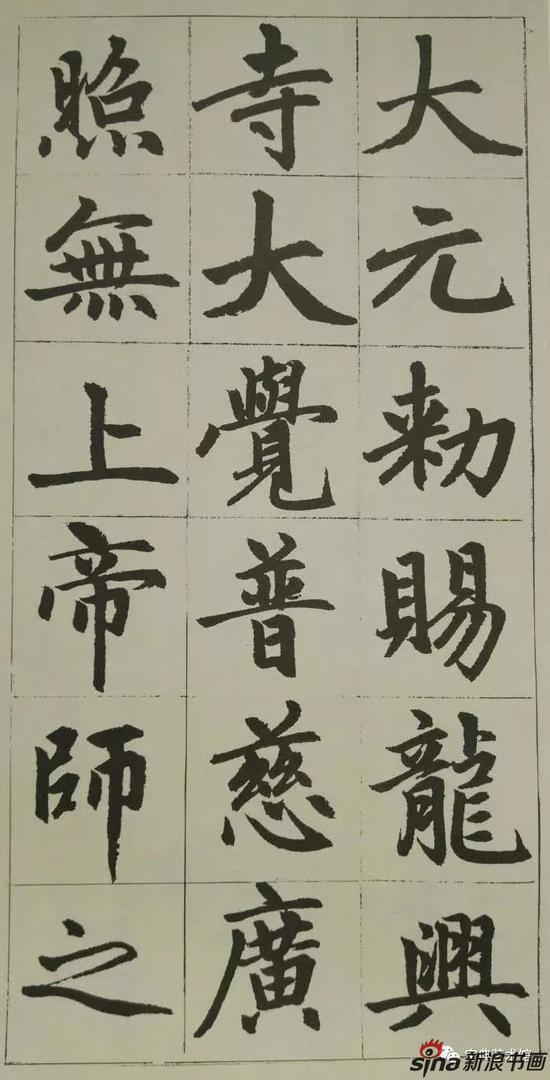 大元勑賜龍興
寺大覺普慈廣
照無上帝師之
sina新浪书画